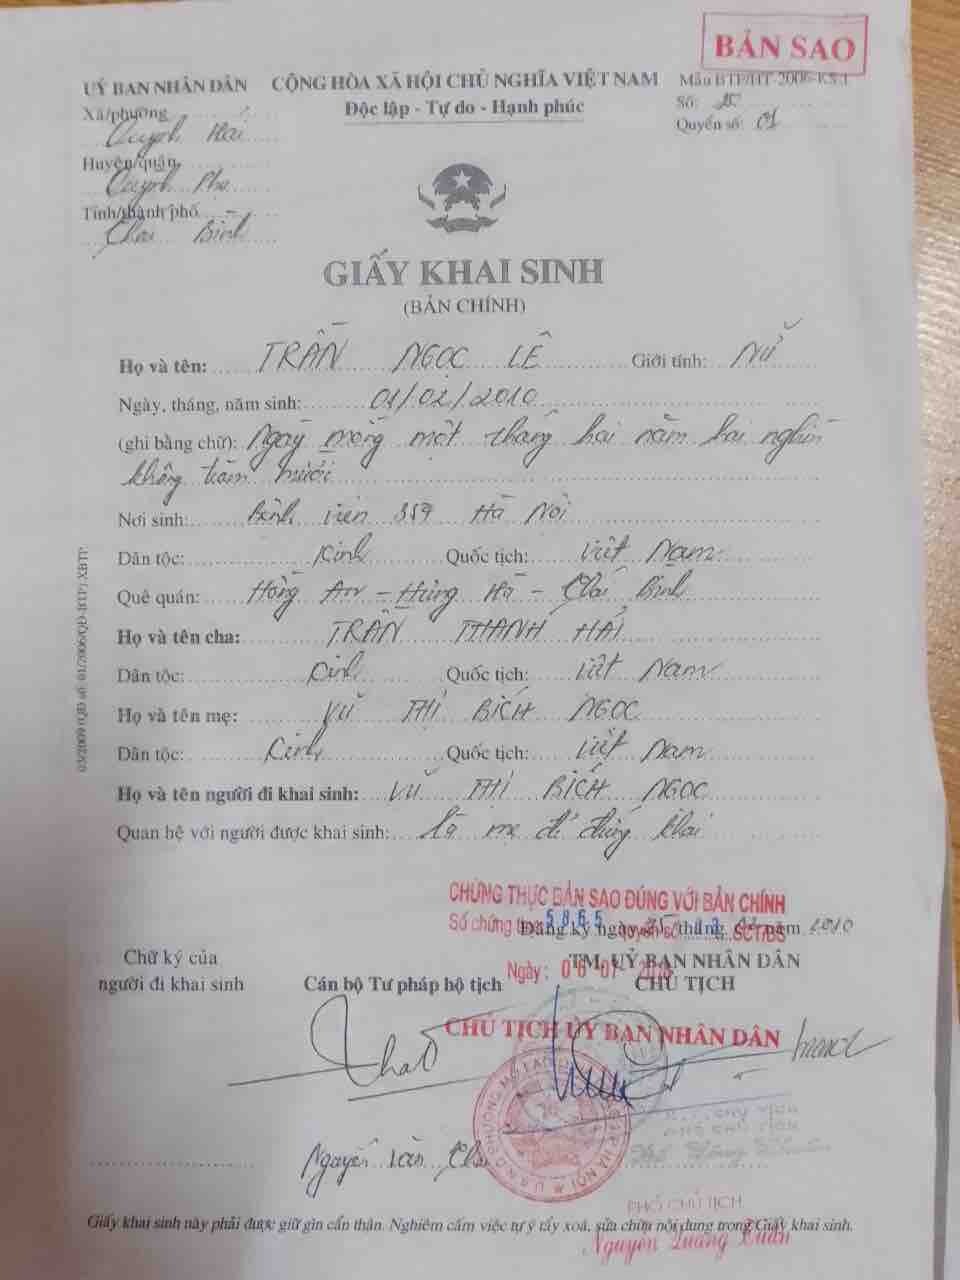 BẢN SAO
UỶ BAN NHÂN DÂN
CỘNG HÒA XÃ HỘI CHỦ NGHĨA VIỆT NAM
Mẫu BTP/HT-2006-KS.1
Xã/phường
Độc lập - Tự do - Hạnh phúc
Số:
Quỳnh Hải
Quyển số: 01
Huyện/quận
Quỳnh Phụ
Tỉnh/thành phố
Thái Bình
GIẤY KHAI SINH
(BẢN CHÍNH)
Họ và tên: TRẦN NGỌC LÊ Giới tính: Nữ
Ngày, tháng, năm sinh: 01/02/2010
(ghi bằng chữ): Ngày mồng một tháng hai năm hai nghìn
không trăm mười
Nơi sinh: Bệnh viện 354 Hà Nội
Dân tộc: Kinh Quốc tịch: Việt Nam
Quê quán: Hồng An - Hưng Hà - Thái Bình
Họ và tên cha: TRẦN THANH HẢI
Dân tộc: Kinh Quốc tịch: Việt Nam
Họ và tên mẹ: VŨ THỊ BÍCH NGỌC
Dân tộc: Kinh Quốc tịch: Việt Nam
Họ và tên người đi khai sinh: VŨ THỊ BÍCH NGỌC
Quan hệ với người được khai sinh: Là mẹ đi đứng khai
03/2009 (QĐ số: 01/2006/QĐ-BTP).XBTP.
CHỨNG THỰC BẢN SAO ĐÚNG VỚI BẢN CHÍNH
Số chứng thực 5865 quyển số SCT/BS
Đăng ký ngày tháng năm 2010
Chữ ký của
người đi khai sinh
Cán bộ Tư pháp hộ tịch
Ngày: 06-07-
TM. UỶ BAN NHÂN DÂN
CHỦ TỊCH
CHỦ TỊCH ỦY BAN NHÂN DÂN
Nguyễn Văn
PHÓ CHỦ TỊCH
PHÓ CHỦ TỊCH
Nguyễn Quang Tuấn
Giấy khai sinh này phải được giữ gìn cẩn thận. Nghiêm cấm việc tự ý tẩy xoá, sửa chữa nội dung trong Giấy khai sinh.